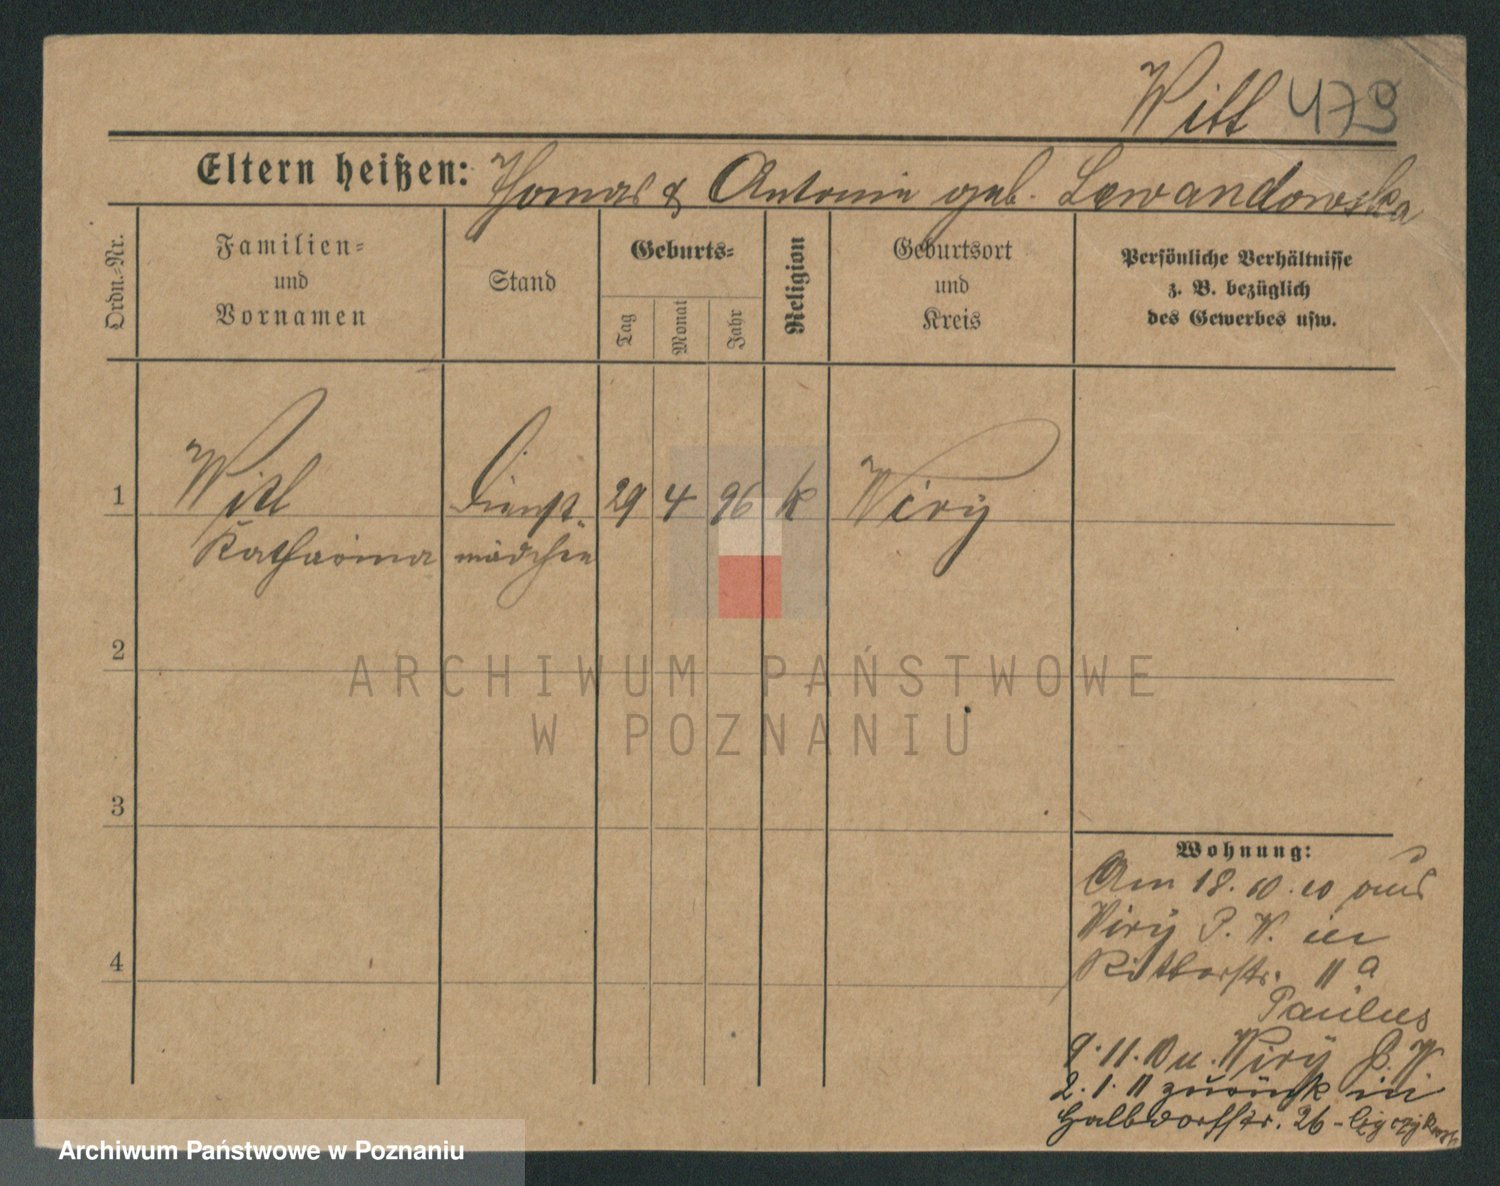 Witt 479
Eltern heißen: Thomas & Antonie geb. Lewandowska
Ordn.=Nr.
Familien=
und
Vornamen
Stand
Geburts=
Tag
Monat
Jahr
Religion
Geburtsort
und
Kreis
Persönliche Verhältnisse
z. B. bezüglich
des Gewerbes usw.
1 Witt Dienst- 29 4 96 k Wiry
Katharina mädchen
2
ARCHIWUM PAŃSTWOWE
W POZNANIU
3
Wohnung:
Am 18.10.10 aus
Wiry P. W. in
4
Ritterstr. 11a
Paulus
9.11.10 n. Wiry P. W
2.1.11 zurück in
Halbdorfstr. 26 -
Archiwum Państwowe w Poznaniu